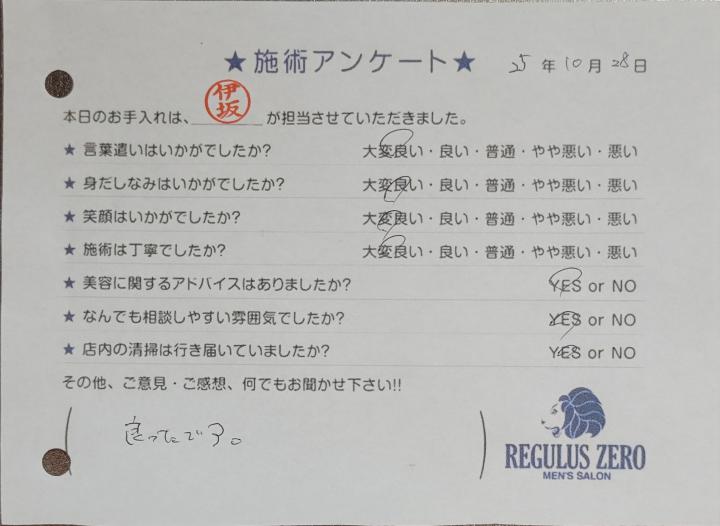 ★施術アンケート★ 25年10月28日
本日のお手入れは、伊坂が担当させていただきました。
★ 言葉遣いはいかがでしたか? 大変良い・良い・普通・やや悪い・悪い
★ 身だしなみはいかがでしたか? 大変良い・良い・普通・やや悪い・悪い
★ 笑顔はいかがでしたか? 大変良い・良い・普通・やや悪い・悪い
★ 施術は丁寧でしたか? 大変良い・良い・普通・やや悪い・悪い
★ 美容に関するアドバイスはありましたか? YES or NO
★ なんでも相談しやすい雰囲気でしたか? YES or NO
★ 店内の清掃は行き届いていましたか? YES or NO
その他、ご意見・ご感想、何でもお聞かせ下さい!!
良ったです。
REGULUS ZERO
MEN'S SALON